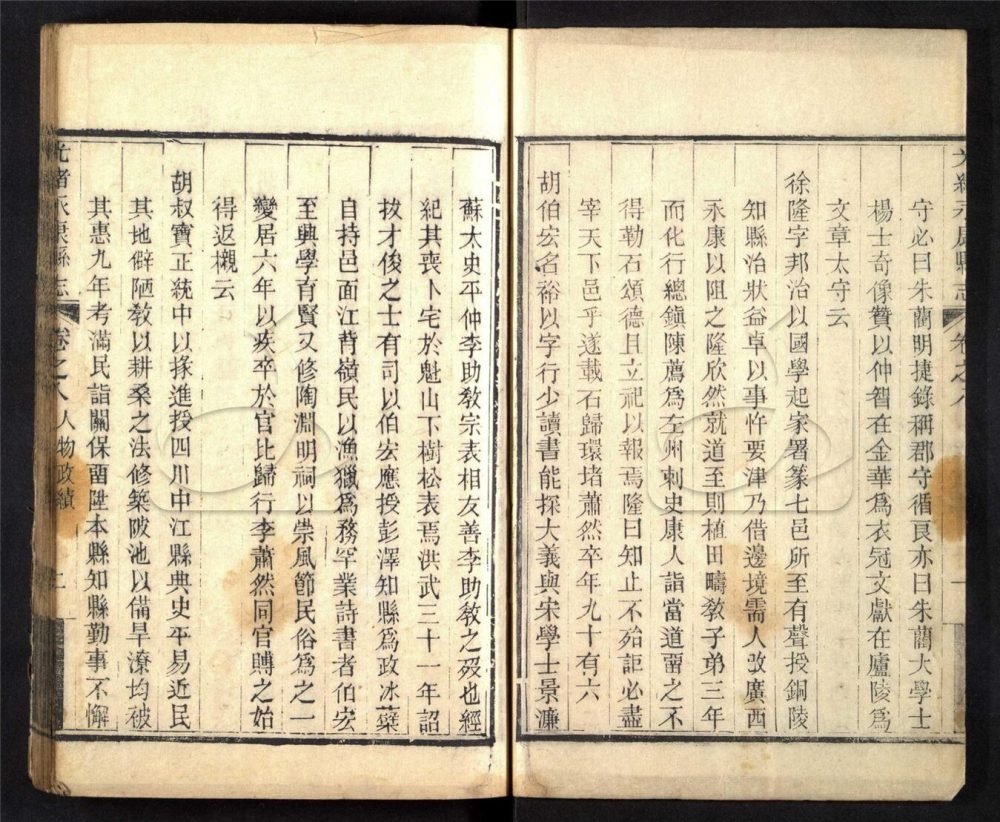 守必曰朱藺明捷錄稱郡守循良亦曰朱藺大學士
楊士奇像贊以仲智在金華爲衣冠文獻在廬陵爲
文章太守云
徐隆字邦治以國學起家署篆七邑所至有聲授銅陵
知縣治狀益卓以事忤要津乃借邊境需人改廣西
永康以阻之隆欣然就道至則植田疇敎子弟三年
而化行總鎭陳薦爲左州刺史康人詣當道畱之不
得勒石頌德且立祀以報焉隆曰知止不殆詎必盡
宰天下邑乎遂載石歸環堵蕭然卒年九十有六
胡伯宏名裕以字行少讀書能探大義與宋學士景濂
蘇太史平仲李助敎宗表相友善李助敎之歿也經
紀其喪卜宅於魁山下樹松表焉洪武三十一年詔
拔才俊之士有司以伯宏應授彭澤知縣爲政冰蘗
自持邑面江背嶺民以漁獵爲務罕業詩書者伯宏
至興學育賢又修陶淵明祠以崇風節民俗爲之一
變居六年以疾卒於官比歸行李蕭然同官賻之始
得返櫬云
胡叔寶正統中以掾進授四川中江縣典史平易近民
其地僻陋敎以耕桑之法修築陂池以備旱潦均被
其惠九年考滿民詣闕保畱陞本縣知縣勤事不懈
光緒永康縣志
卷之八人物政績
二